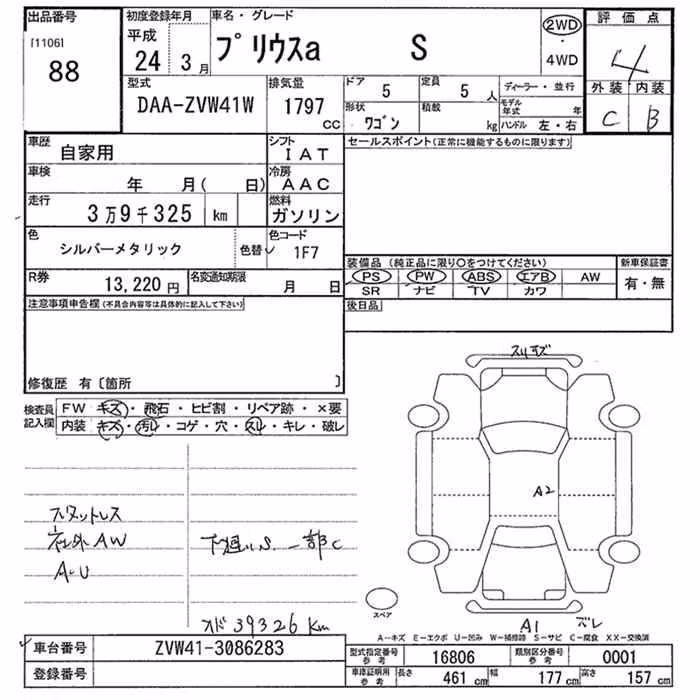 出品番号
[1106]
88
初度登録年月
平成
24 3月
車名・グレード
プリウスa S
2WD
・
4WD
評価点
4
外装 内装
C B
型式
DAA-ZVW41W
排気量
1797
CC
ドア
5
定員
5 人
形状
ワゴン
積載
kg
ディーラー・並行
モデル年式 年
ハンドル 左・右
車歴
自家用
シフト
IAT
車検
年 月( 日)
冷房
AAC
走行
3万9千325 km
燃料
ガソリン
色
シルバーメタリック
色替
色コード
1F7
R券
13,220 円
名変通知期限
月 日
セールスポイント(正常に機能するものに限ります)
装備品 (純正品に限り○をつけてください)
PS PW ABS エアB AW
SR ナビ TV カワ
新車保証書
有・無
後日品
注意事項申告欄(不具合内容等は具体的に記入して下さい)
修復歴 有〔箇所 〕
検査員
記入欄
FW キズ・飛石・ヒビ割・リペア跡・×要
内装 キズ・汚レ・コゲ・穴・スレ・キレ・破レ
スリキズ
A2
スタットレス
社外AW
A・U
下廻りS.一部C
オド39326km
スペア
A1 ズレ
A―キズ E―エクボ U―凹み W―補修跡 S―サビ C―腐食 XX―交換済
車台番号
ZVW41-3086283
登録番号
型式指定番号
参考
16806
類別区分番号
参考
0001
車庫証明用
参考
長さ 461 cm 幅 177 cm 高さ 157 cm